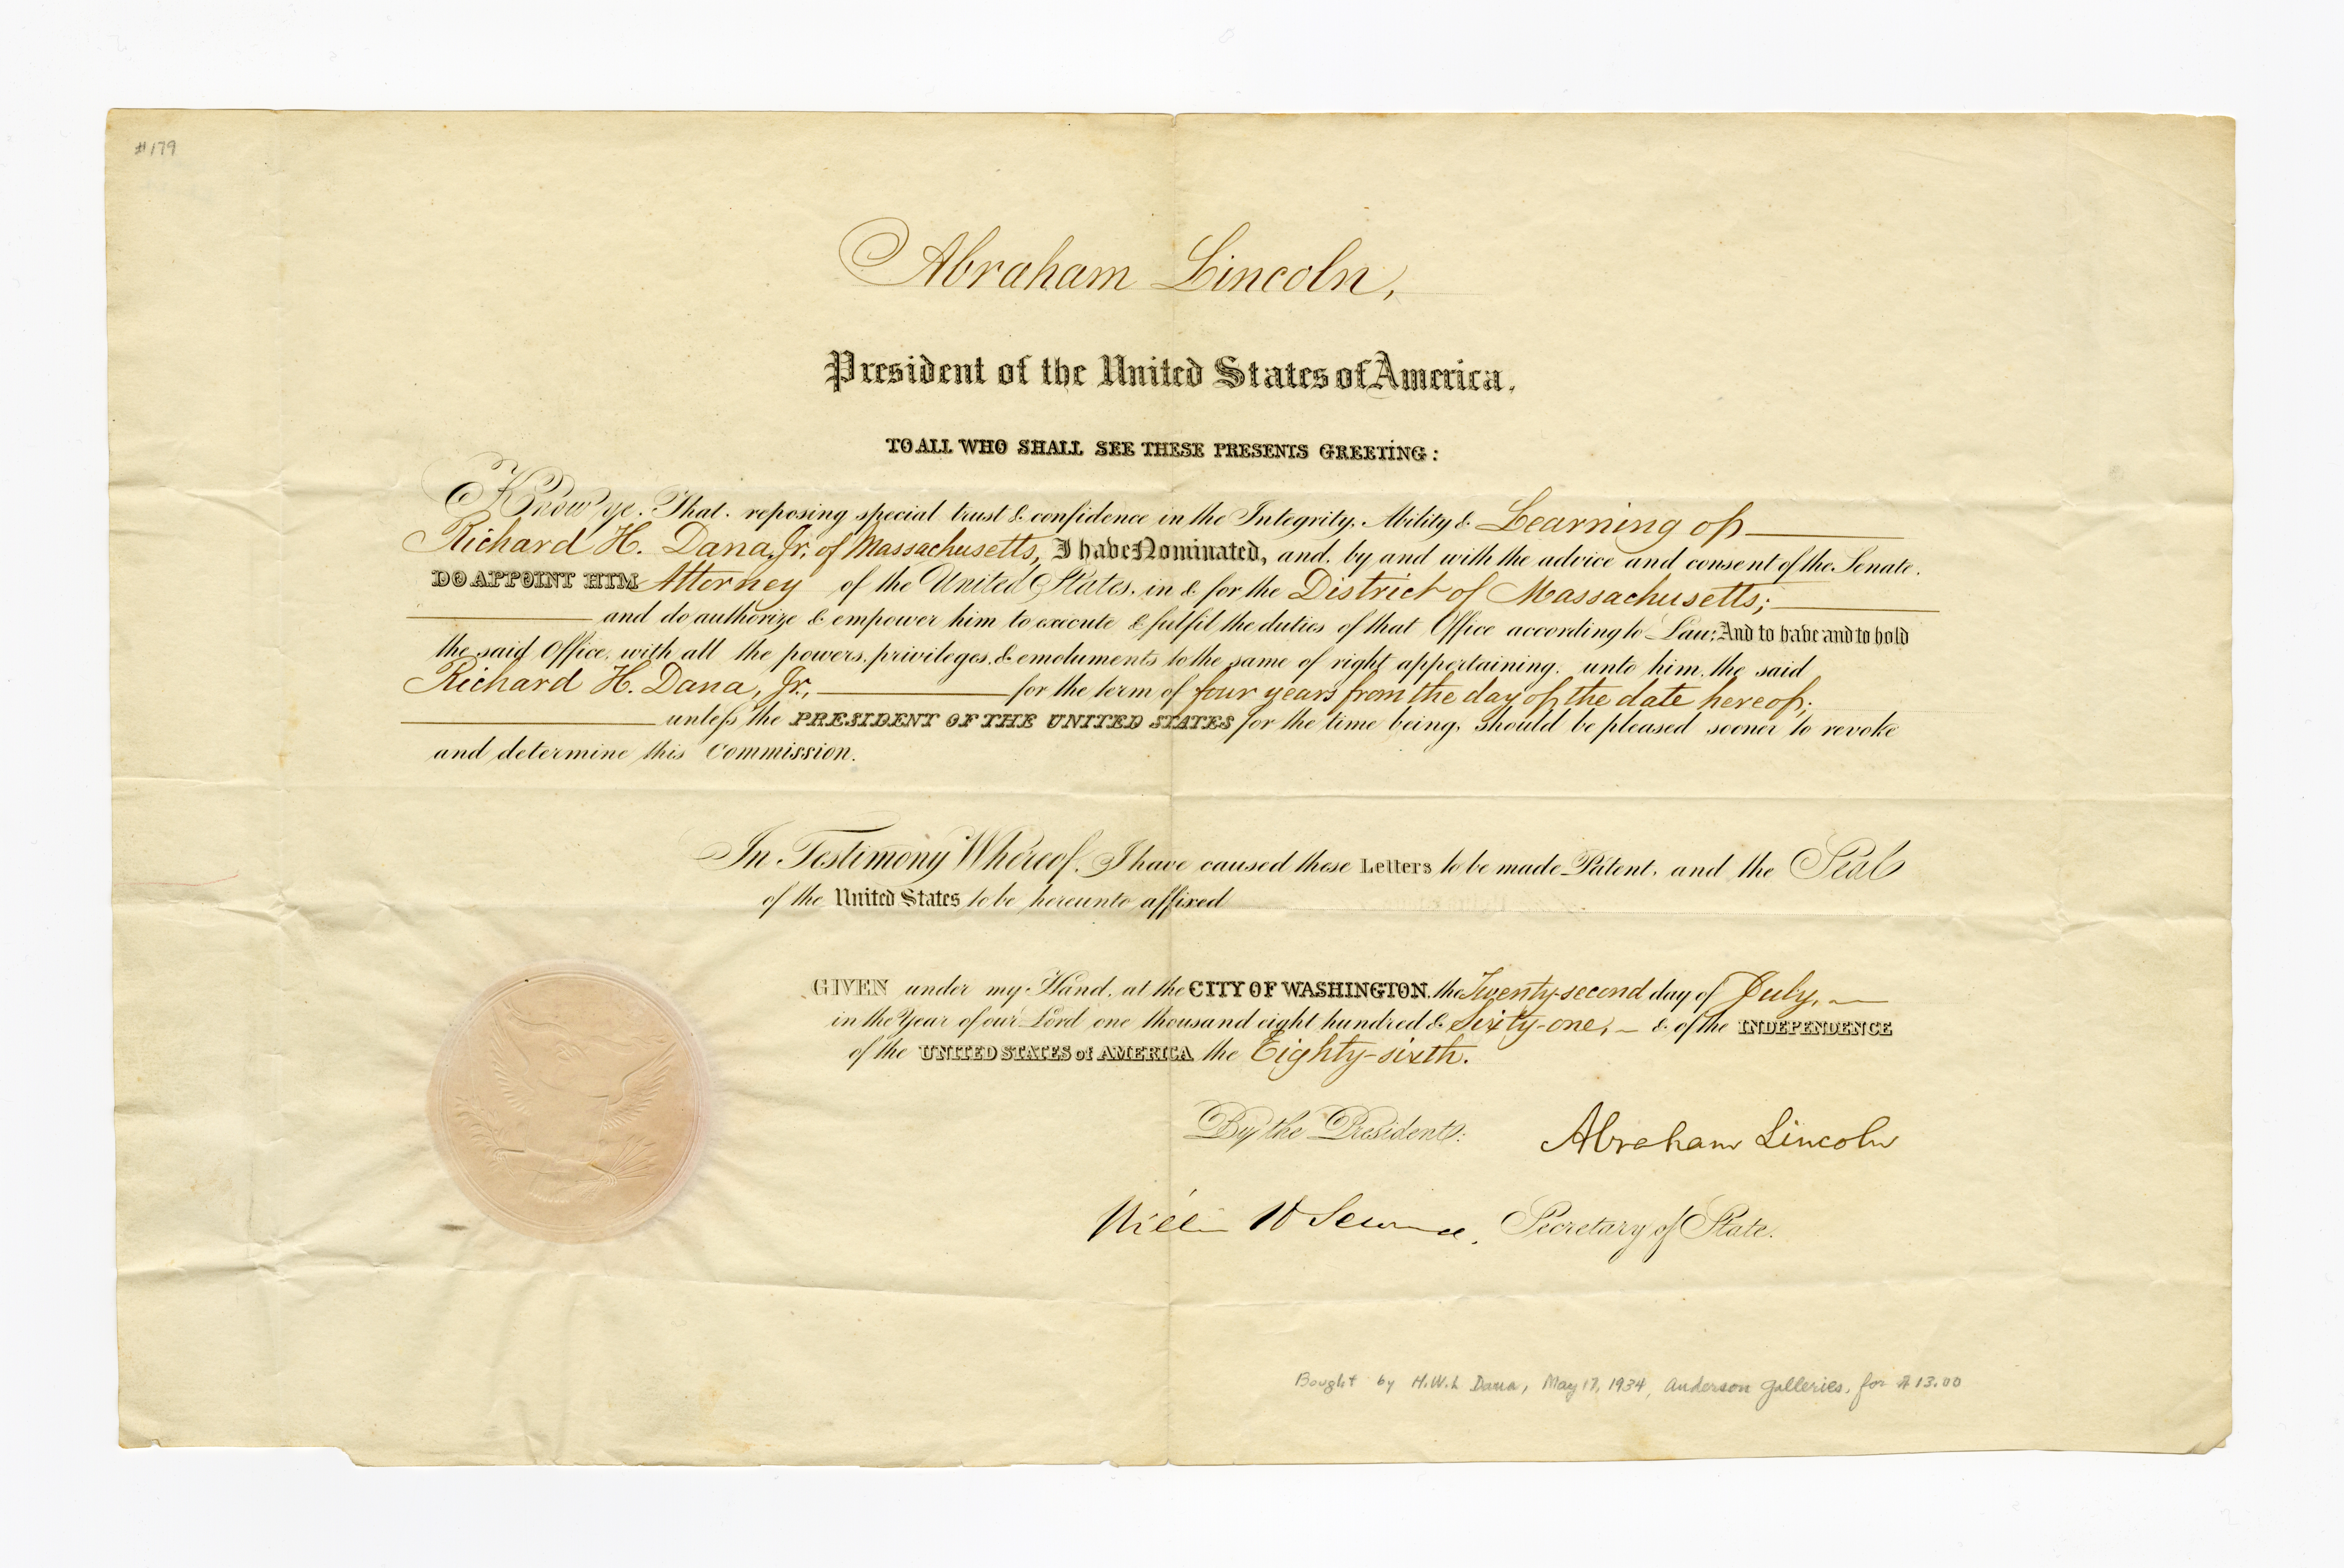 #179
Abraham Lincoln,
President of the United States of America.
TO ALL WHO SHALL SEE THESE PRESENTS GREETING:
Know ye. That. reposing special trust & confidence in the Integrity, Ability & Learning of
Richard H. Dana, Jr. of Massachusetts, I have Nominated, and. by and with the advice and consent of the Senate.
DO APPOINT HIM Attorney of the United States, in & for the District of Massachusetts;
and do authorize & empower him to execute & fulfil the duties of that Office according to Law; And to have and to hold
the said Office, with all the powers, privileges, & emoluments to the same of right appertaining, unto him, the said
Richard H. Dana, Jr., for the term of four years from the day of the date hereof;
unless the PRESIDENT OF THE UNITED STATES for the time being, should be pleased sooner to revoke
and determine this Commission.
In Testimony Whereof, I have caused these Letters to be made Patent, and the Seal
of the United States to be hereunto affixed
GIVEN under my Hand, at the CITY OF WASHINGTON, the Twenty-second day of July,
in the Year of our Lord one thousand eight hundred & Sixty-one, & of the INDEPENDENCE
of the UNITED STATES of AMERICA the Eighty-sixth.
By the President: Abraham Lincoln
William H Seward. Secretary of State.
Bought by H.W.L Dana, May 17, 1934, Anderson Galleries, for $13.00